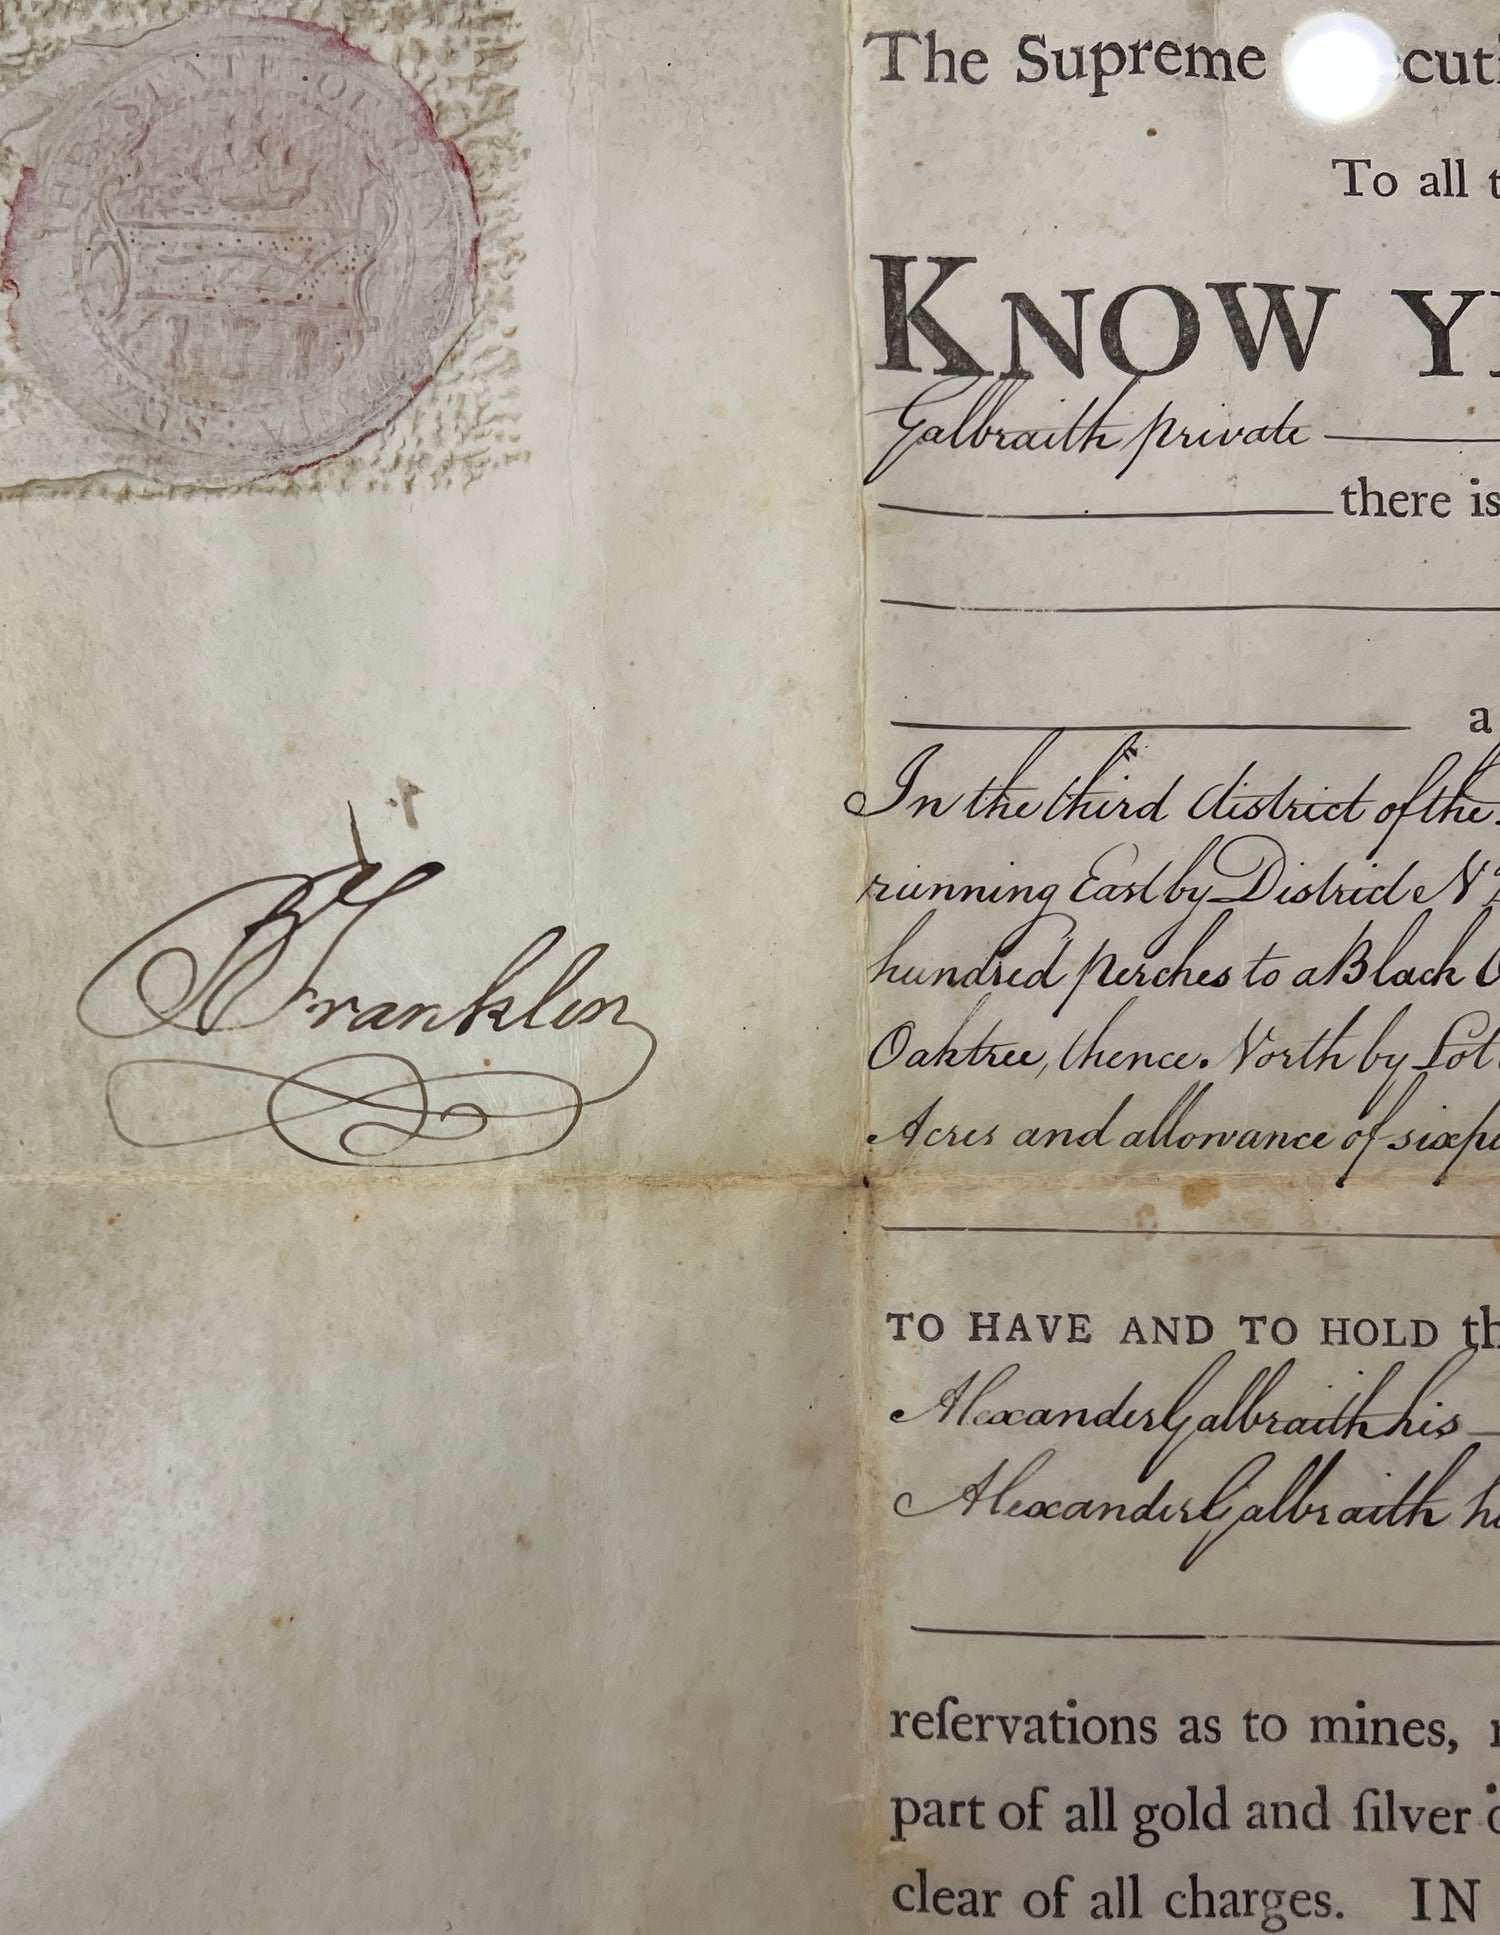 STATE OF
B Franklin
The Supreme
To all t
KNOW YE
Galbraith private
there is
a
In the third district of the
running East by District No
hundred perches to a Black O
Oaktree, thence North by Lot
Acres and allowance of six pe
TO HAVE AND TO HOLD th
Alexander Galbraith his
Alexander Galbraith h
reſervations as to mines,
part of all gold and ſilver o
clear of all charges. IN